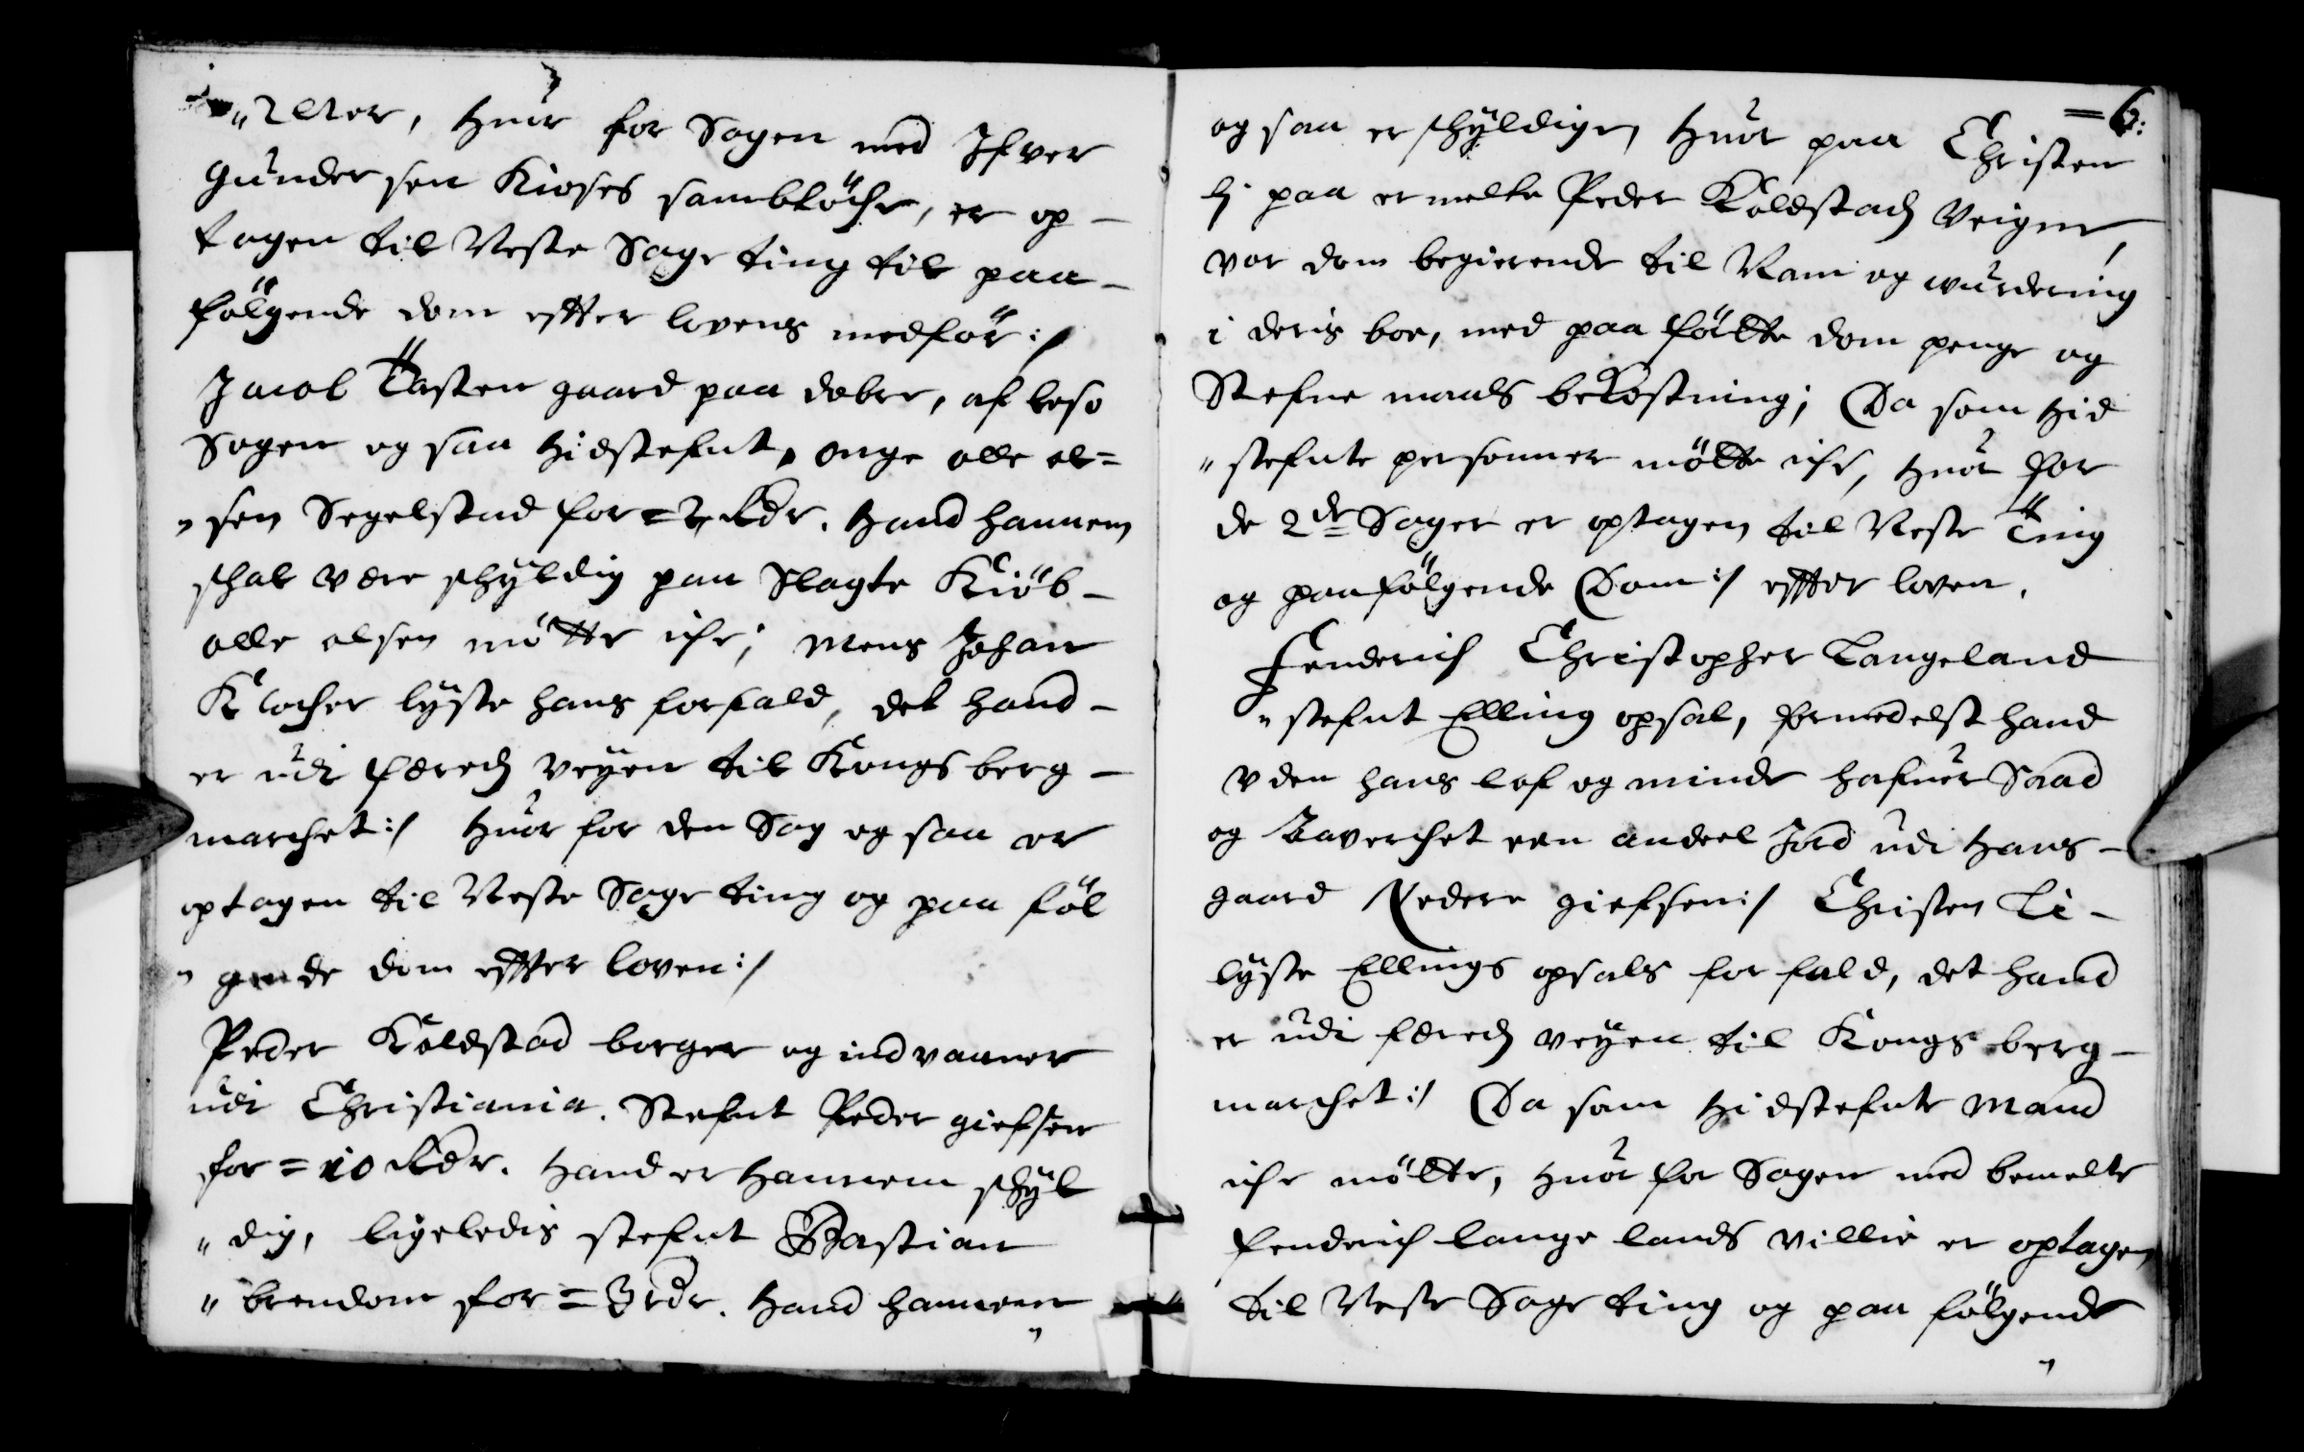 Huor for Sagen med Ifver
Gunder sen Kioses samblöchr, er op -
tagen til Neste Sage ting til paa -
fölgende dom effter lovens medför:/
Jacob Tosten gaard paa dobre, af leso
Sogen og saa hidstefnt, onge olle ol=
" sen Segelstad for = 2 Rdr. hand hannem
schal vere schyldig paa Slagte Kiöb -
olle olsen mötte iche; Mens Johan
Klocher lyste hans forfald, det hand -
er udi ferd paa veyen til Kongsberg -
marchet:/ Huor for den Sag og saa er
optagen til Neste Sage ting og paa föl
" gende dom effter loven:/
Peder Koldstad borger og indvaaner
udi Christiania. Stefnt Peder giefsen
for = 10 Rdr. hand er hannem schyl
" dig, ligeledis stefnt Bastian
" brendom for = 3 rdr. hand hannem
= 6:
og saa er schyldigen Huor paa Christen
Li paa ermelte Peder Koldstads Veigne,
var dom begierende til Nam og wurdering
i deris boe, med paa fölte dom penge og
Stefne maals bekostning; Da som Hid
" stefnte personner mötte iche, Huor for
de 2de Sager er optagen til Neste Ting
og paafölgende Dom:/ effter loven.
Fenderich Christopher Langeland
" stefnt Elling opsal, formedelst hand
uden hans lof og minde hafuer Saad
og Baverchet een andeel Jord udi Hans -
gaard Nedere giefsen:/ Christen Li -
lyste Ellings opsals for fald, det hand
er udi ferd paa veyen til Kongs berg -
marchet:/ Da som Hidstefnte Mand
iche mötte, Huor for Sagen med bemelte
fendrich lange lands villie er optagen
til Neste Sage ting og paa fölgende